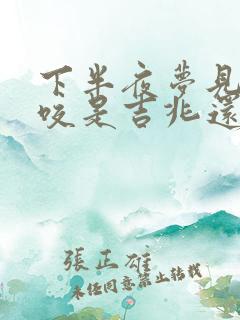 下半夜夢見
咬是吉兆還
張正雄
未經同意禁止轉載